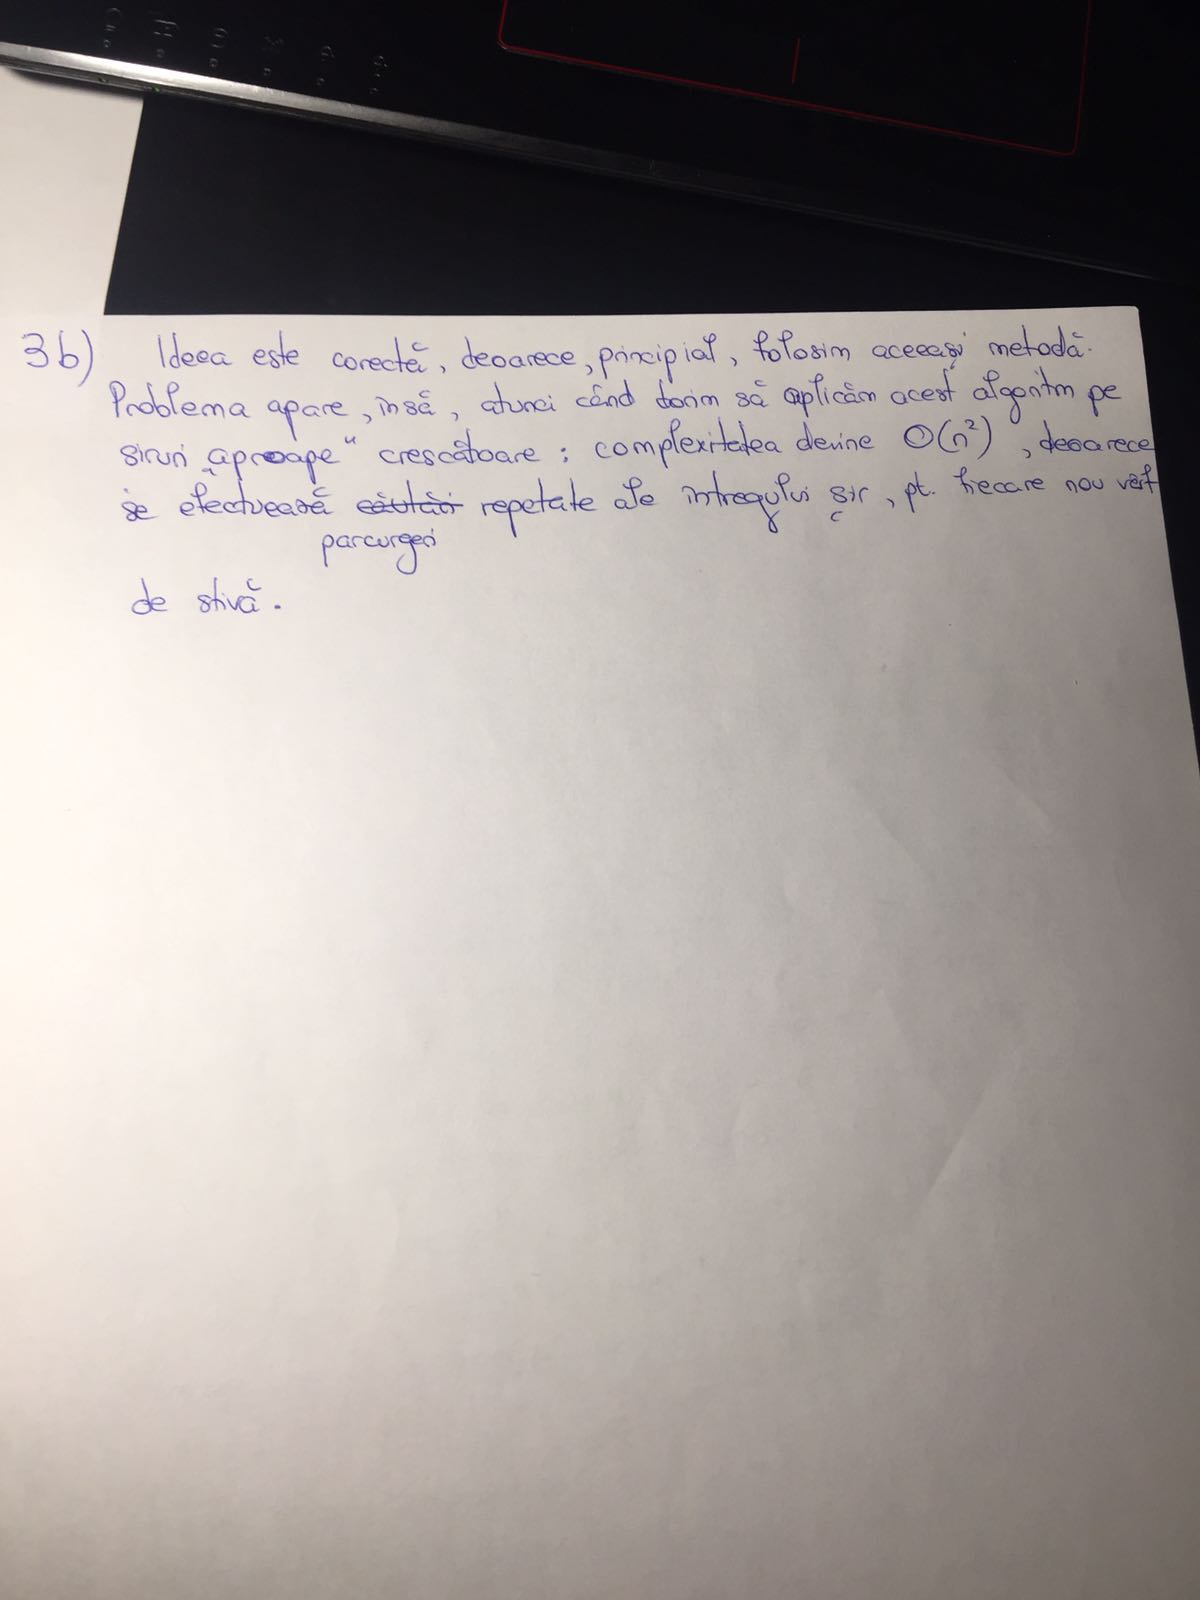 3b) Ideea este corectă, deoarece, principial, folosim aceeași metodă.
Problema apare, însă, atunci când dorim să aplicăm acest algoritm pe
șiruri „aproape“ crescătoare: complexitatea devine O(n²), deoarece
se efectuează căutări repetate ale întregului șir, pt. fiecare nou vârf
parcurgeri
de stivă.